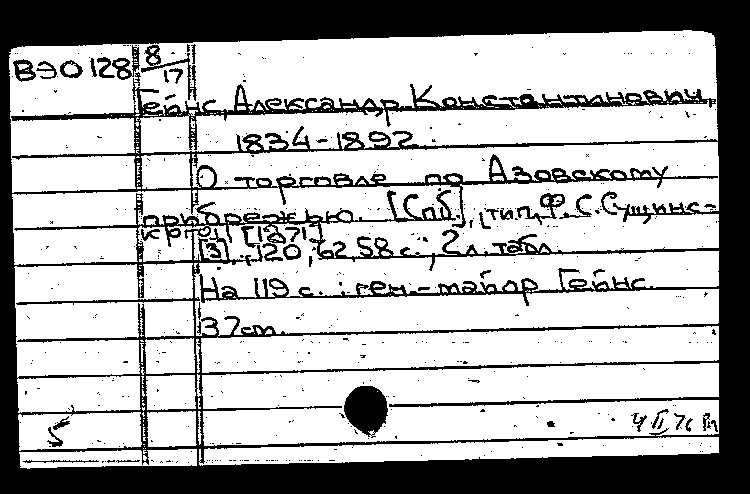 ВЭО 128 8/17
Гейнс, Александр Константинович,
1834-1892.
О торговле по Азовскому
прибрежью. [Спб], [тип. Ф.С.Сущинс-
кого] [1871]
[3], 120, 62, 58 с.; 2 л. табл.
На 119 с.: ген.-майор Гейнс.
37 см.